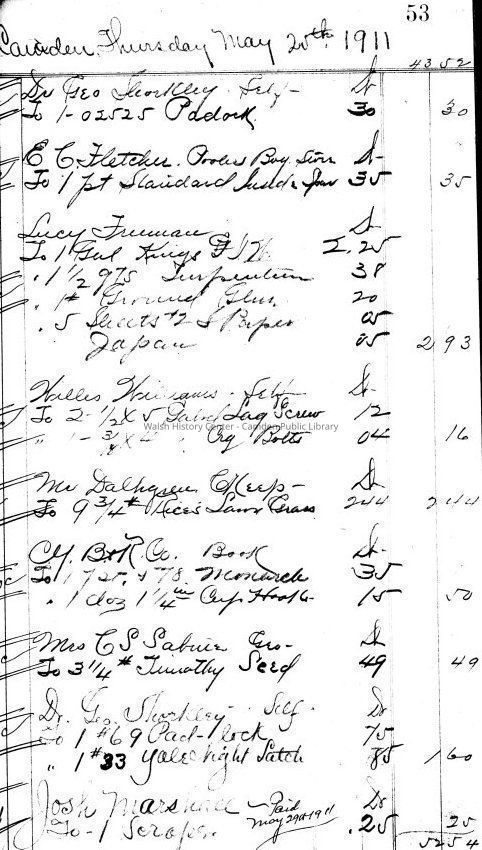 53
Camden, Thursday May 25th, 1911
43 52
Dr Geo Shockley. Self- Dr
To 1- 02525 Padock 30 30
E C Fletcher. Dr
To 1 pt Standard 35 35
Lucy Freeman Dr
To 1 Gal Kings 2.25
" 1 1/2 Turpentine 38
" 1# Ground Glue 20
" 5 Sheets #2 S Paper 05
Japan 05 2 93
Willis Williams. Self- Dr
To 2- 1/2 X 5 Lag Screw 12
" 1- Bolts 04 16
Walsh History Center - Camden Public Library
Mr Dalhgren Dr
To 9 3/4 # Rice's Lawn Grass 244 2 44
Co. Book Dr
To 1 Monarch 35
" 1 doz 1 1/4 in Cup Hooks 15 50
Mrs C S Sabin Gro- Dr
To 3 1/4 # Timothy Seed 49 49
Dr. Geo Shockley Self- Dr
To 1 #69 Pad-lock 75
" 1 #33 Yale Night Latch 85 1 60
Josh Marshall Paid May 29th 1911 Dr
To- 1 Scraper. .25 25
52 54